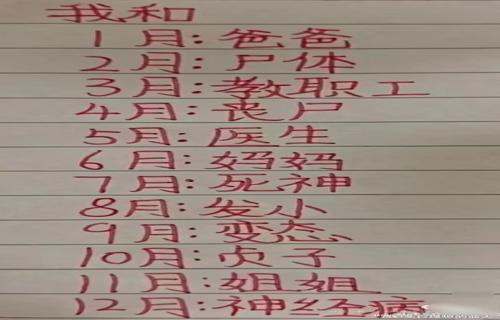 我和
1月:爸爸
2月:尸体
3月:教职工
4月:丧尸
5月:医生
6月:妈妈
7月:死神
8月:发小
9月:变态
10月:贞子
11月:姐姐
12月:神经病